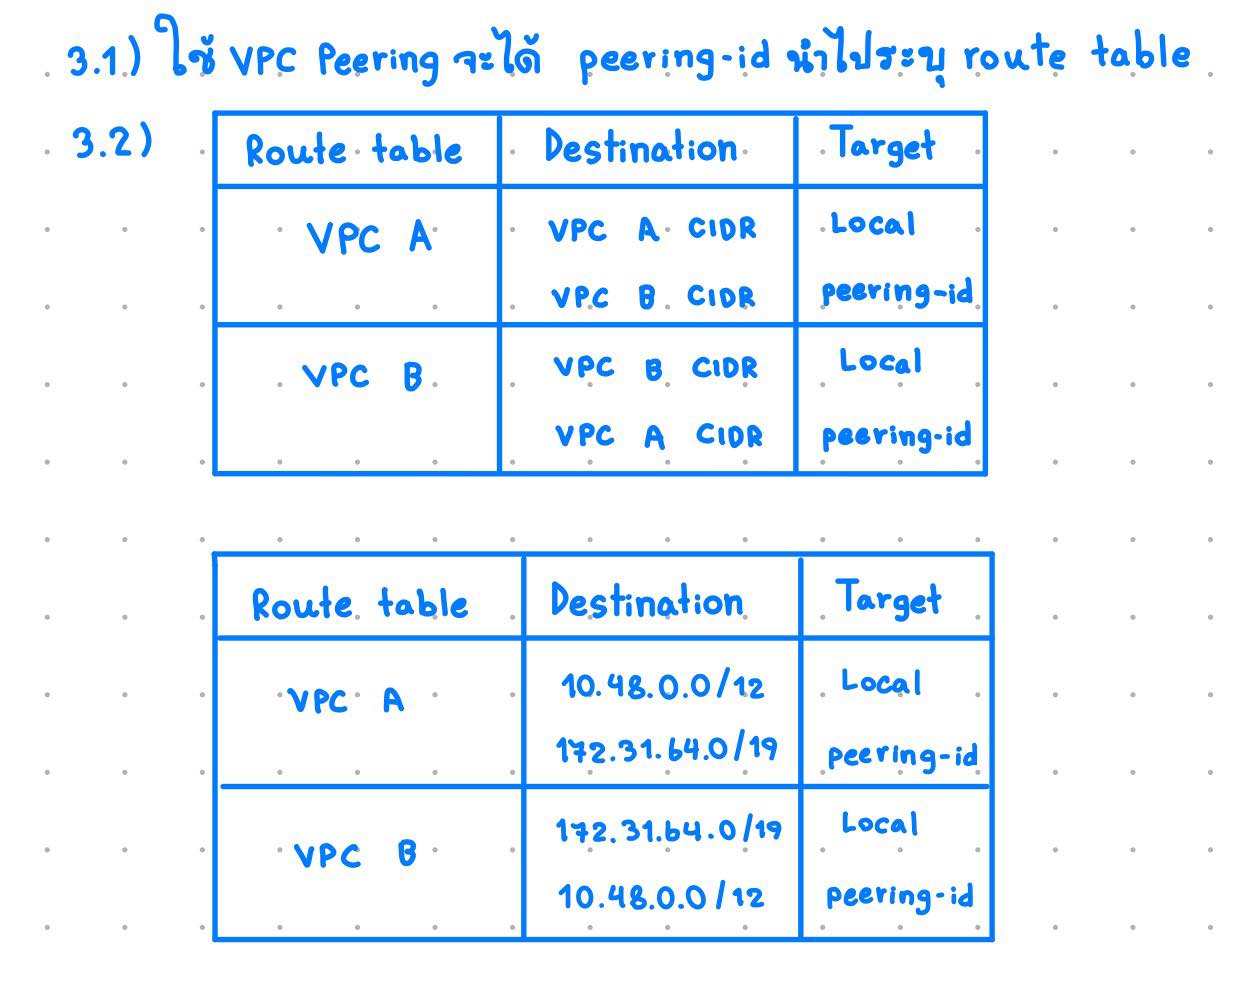 3.1) ใช้ VPC Peering จะได้ peering-id นำไประบุ route table
3.2)
Route table Destination Target
VPC A VPC A CIDR Local
VPC B CIDR peering-id
VPC B VPC B CIDR Local
VPC A CIDR peering-id
Route table Destination Target
VPC A 10.48.0.0/12 Local
172.31.64.0/19 peering-id
VPC B 172.31.64.0/19 Local
10.48.0.0/12 peering-id